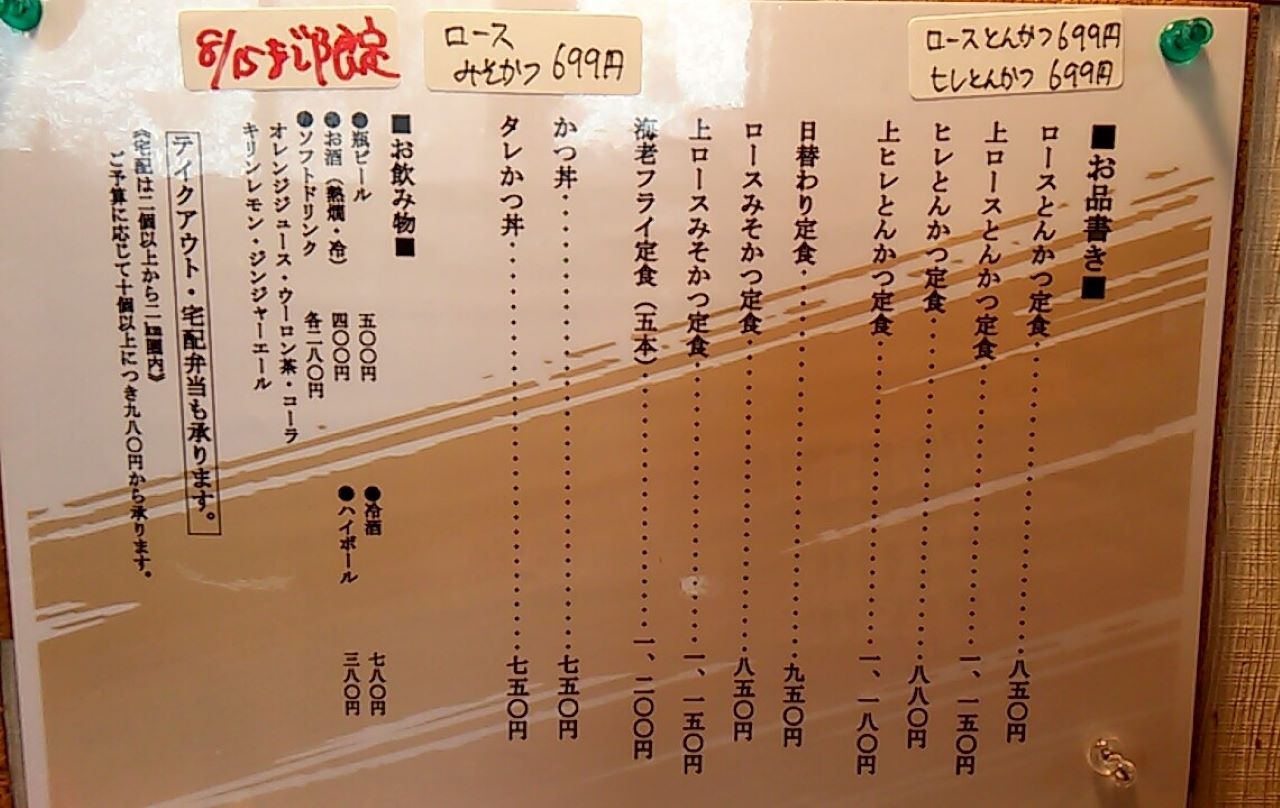 ロースとんかつ 699円
ヒレとんかつ 699円
ロース
みそかつ 699円
8/15まで限定
■お品書き■
ロースとんかつ定食・・・・・・・・・・・・・・・・・・・・八五〇円
上ロースとんかつ定食・・・・・・・・・・・・・・・・・・・・一、一五〇円
ヒレとんかつ定食・・・・・・・・・・・・・・・・・・・・八八〇円
上ヒレとんかつ定食・・・・・・・・・・・・・・・・・・・・一、一八〇円
日替わり定食・・・・・・・・・・・・・・・・・・・・九五〇円
ロースみそかつ定食・・・・・・・・・・・・・・・・・・・・八五〇円
上ロースみそかつ定食・・・・・・・・・・・・・・・・・・・・一、一五〇円
海老フライ定食（五本）・・・・・・・・・・・・・・・・・・一、二〇〇円
かつ丼・・・・・・・・・・・・・・・・・・・・七五〇円
タレかつ丼・・・・・・・・・・・・・・・・・・・・七五〇円
■お飲み物■
●瓶ビール 五〇〇円
●お酒（熱燗・冷） 四〇〇円
●ソフトドリンク 各二八〇円
オレンジジュース・ウーロン茶・コーラ
キリンレモン・ジンジャーエール
●冷酒 七八〇円
●ハイボール 三八〇円
テイクアウト・宅配弁当も承ります。
《宅配は二個以上から二㎞圏内》
ご予算に応じて十個以上につき九八〇円から承ります。